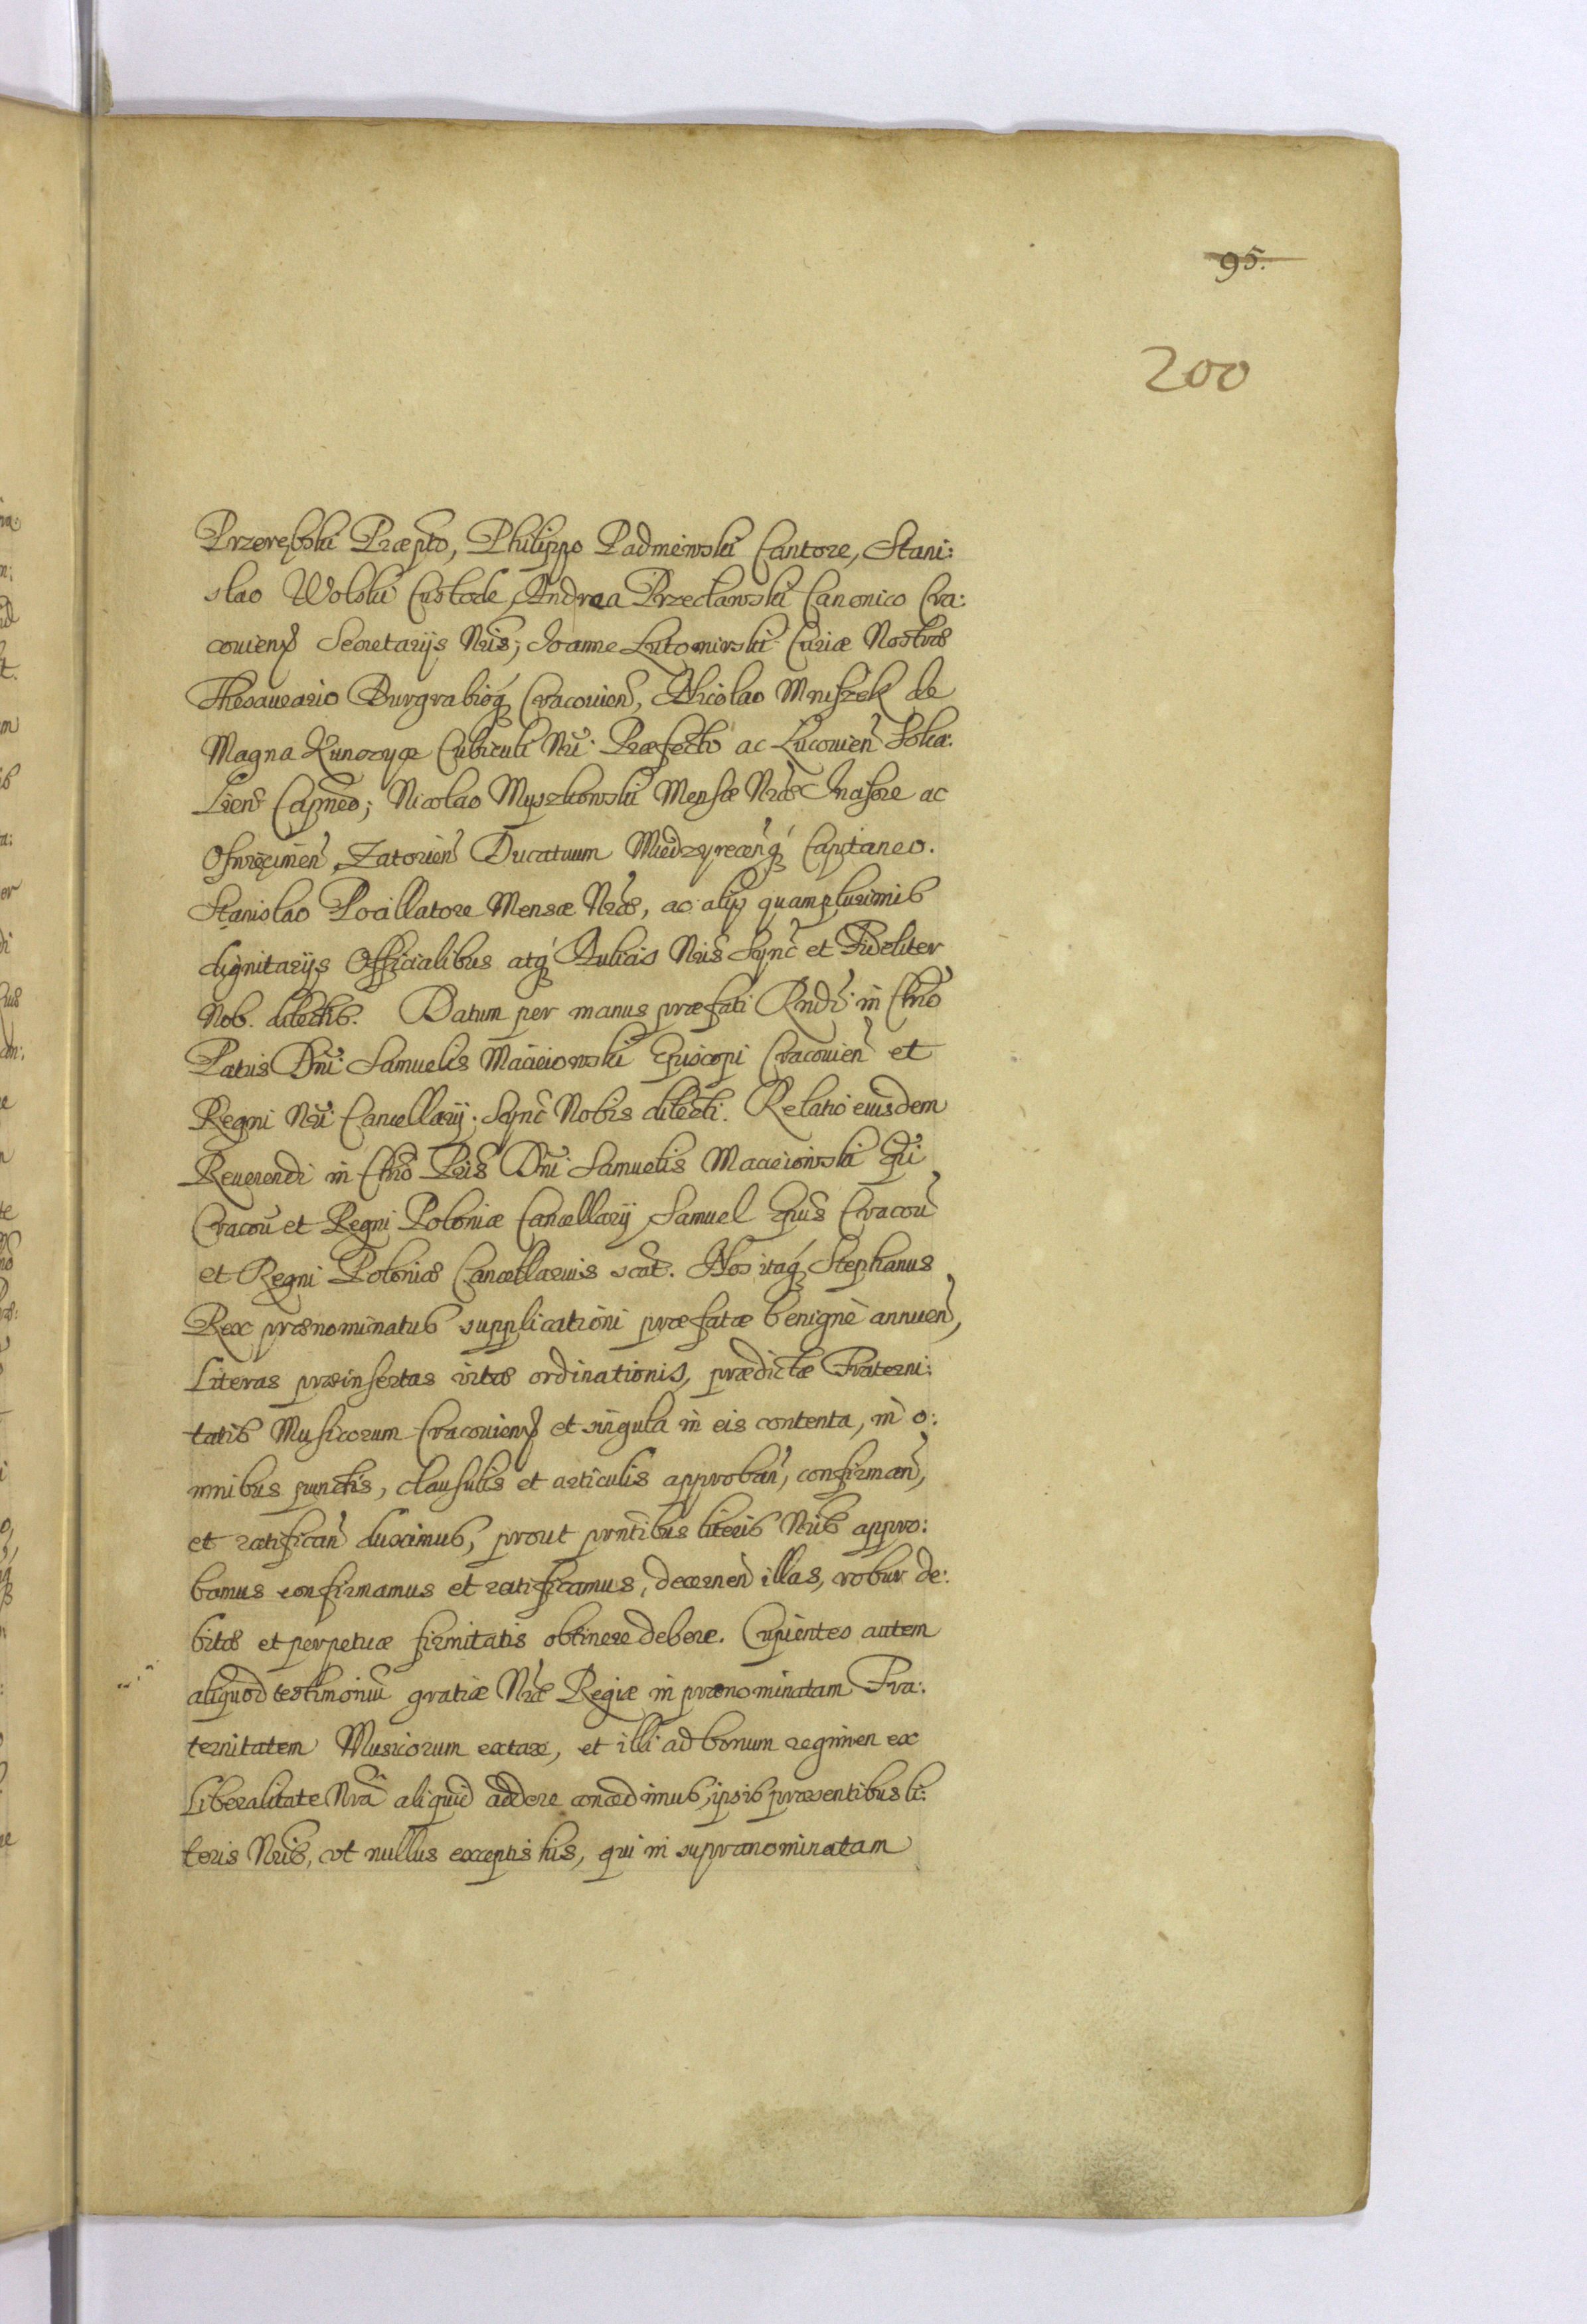 95.
200
Przerębski Præpto, Philippo Padniewski Cantore, Stani:
slao Wolski Custode, Andrea Przecławski Canonico Cra:
couiens Secretarijs Nris; Joanne Lutomirski Curiæ Nostræ
Thesaurario Burgrabioq Cracouien, Nicolao Mniszek de
Magna Kunczyce Cubiculi Nri Præfecto ac Lucouien Soka:
Lien Capneo; Nicolao Myszkowski Mensæ Nræ Incisore ac
Oswięcimen, Zatorien Ducatuum Miedzyrecenq Capitaneo.
Stanislao Pocillatore Mensæ Nræ, ac alijs quamplurimis
dignitarijs Officialibus atq Aulicis Nris Sync et Fideliter
Nob. dilectis. Datum per manus præfati Rndi in Chro
Patris Dni Samuelis Macieiowski Episcopi Cracouien et
Regni Nri Cancellarij. Sync Nobis dilecti. Relatio eiusdem
Reuerendi in Chro Pris Dni Samuelis Macieiowski Epi
Cracou et Regni Poloniæ Cancellarij Samuel Epus Cracou
et Regni Poloniæ Cancellarius scat. Nos itaq Stephanus
Rex prænominatus supplicationi præfatæ benignè annuen,
Literas præinsertas vitæ ordinationis, prædictæ Fraterni:
tatis Musicorum Cracouiens et singula in eis contenta, in o:
mnibus punctis, clausulis et articulis approban, confirman,
et ratifican duximus, prout prntibus literis Nris appro:
bamus confirmamus et ratificamus, decernen illas, robur de:
bitæ et perpetuæ firmitatis obtinere debere. Cupientes autem
aliquod testimoniu gratiæ Nræ Regiæ in prænominatam Fra:
ternitatem Musicorum extare, et illi ad bonum regimen ex
Liberalitate Nra aliquid addere concedimus, ipsis præsentibus li:
teris Nris, vt nullus exceptis his, qui in supranominatam